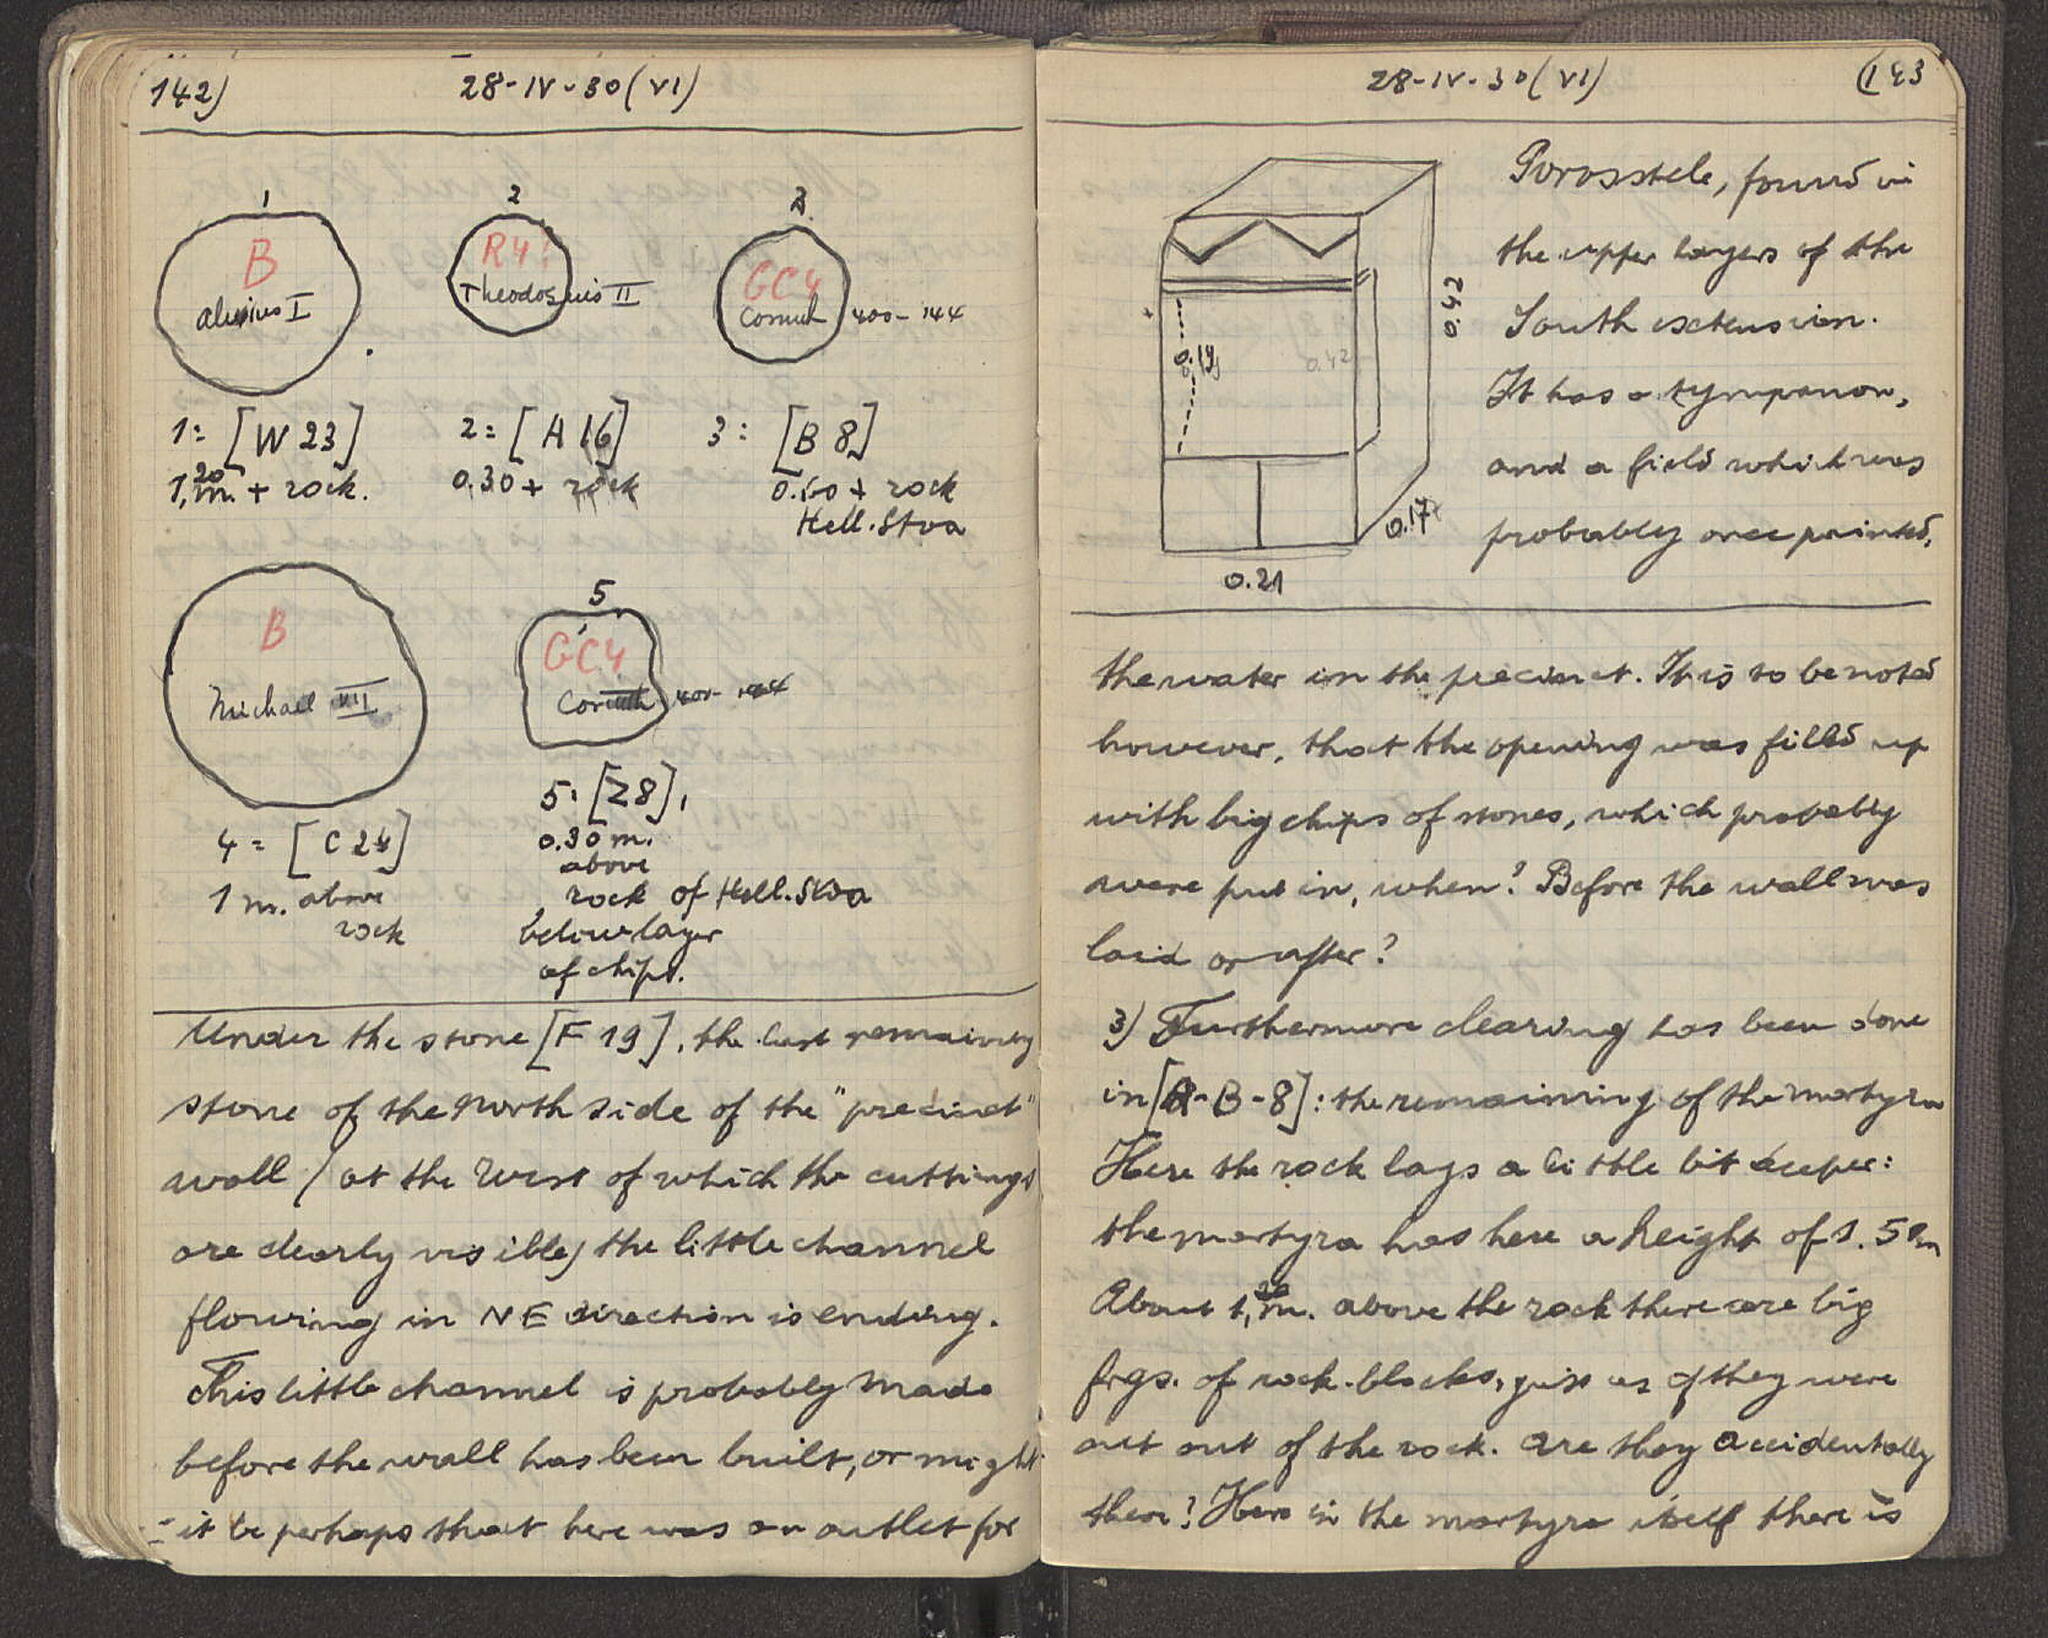 142)
28-IV-30(VI)
1
B
Alexius I
2
R4!
Theodosius II
3
GC4
Corinth 400-144
1= [W 23]
1,20 m. + rock.
2= [A 16]
0.30 + rock
3: [B 8]
0.60 + rock
Hell. Stoa
B
Michael VII
5
GC4
Corinth 400-144
4= [C 24]
1 m. above
rock
5: [Z8],
0.30 m.
above
rock of Hell. Stoa
below layer
of chips.
Under the stone [F 19], the last remaining
stone of the North side of the "precinct"
wall (at the West of which the cuttings
are clearly visible) the little channel
flowing in NE direction is ending.
This little channel is probably made
before the wall has been built, or might
it be perhaps that here was an outlet for
28-IV-30(VI)
(143
0.19
0.42
0.42
0.17
0.21
Porosstele, found in
the upper layers of the
South extension.
It has a tympanon,
and a field which was
probably once painted.
the water in the precinct. It is to be noted
however, that the opening was filled up
with big chips of stones, which probably
were put in, when? Before the wall was
laid or after?
3) Furthermore clearing has been done
in [A-B-8]: the remaining of the martyra
Here the rock lays a little bit deeper:
the martyra has here a height of 1.50m
About 1,20 m. above the rock there are big
frgs. of rock-blocks, just as if they were
cut out of the rock. Are they accidentally
there? Here in the martyra itself there is